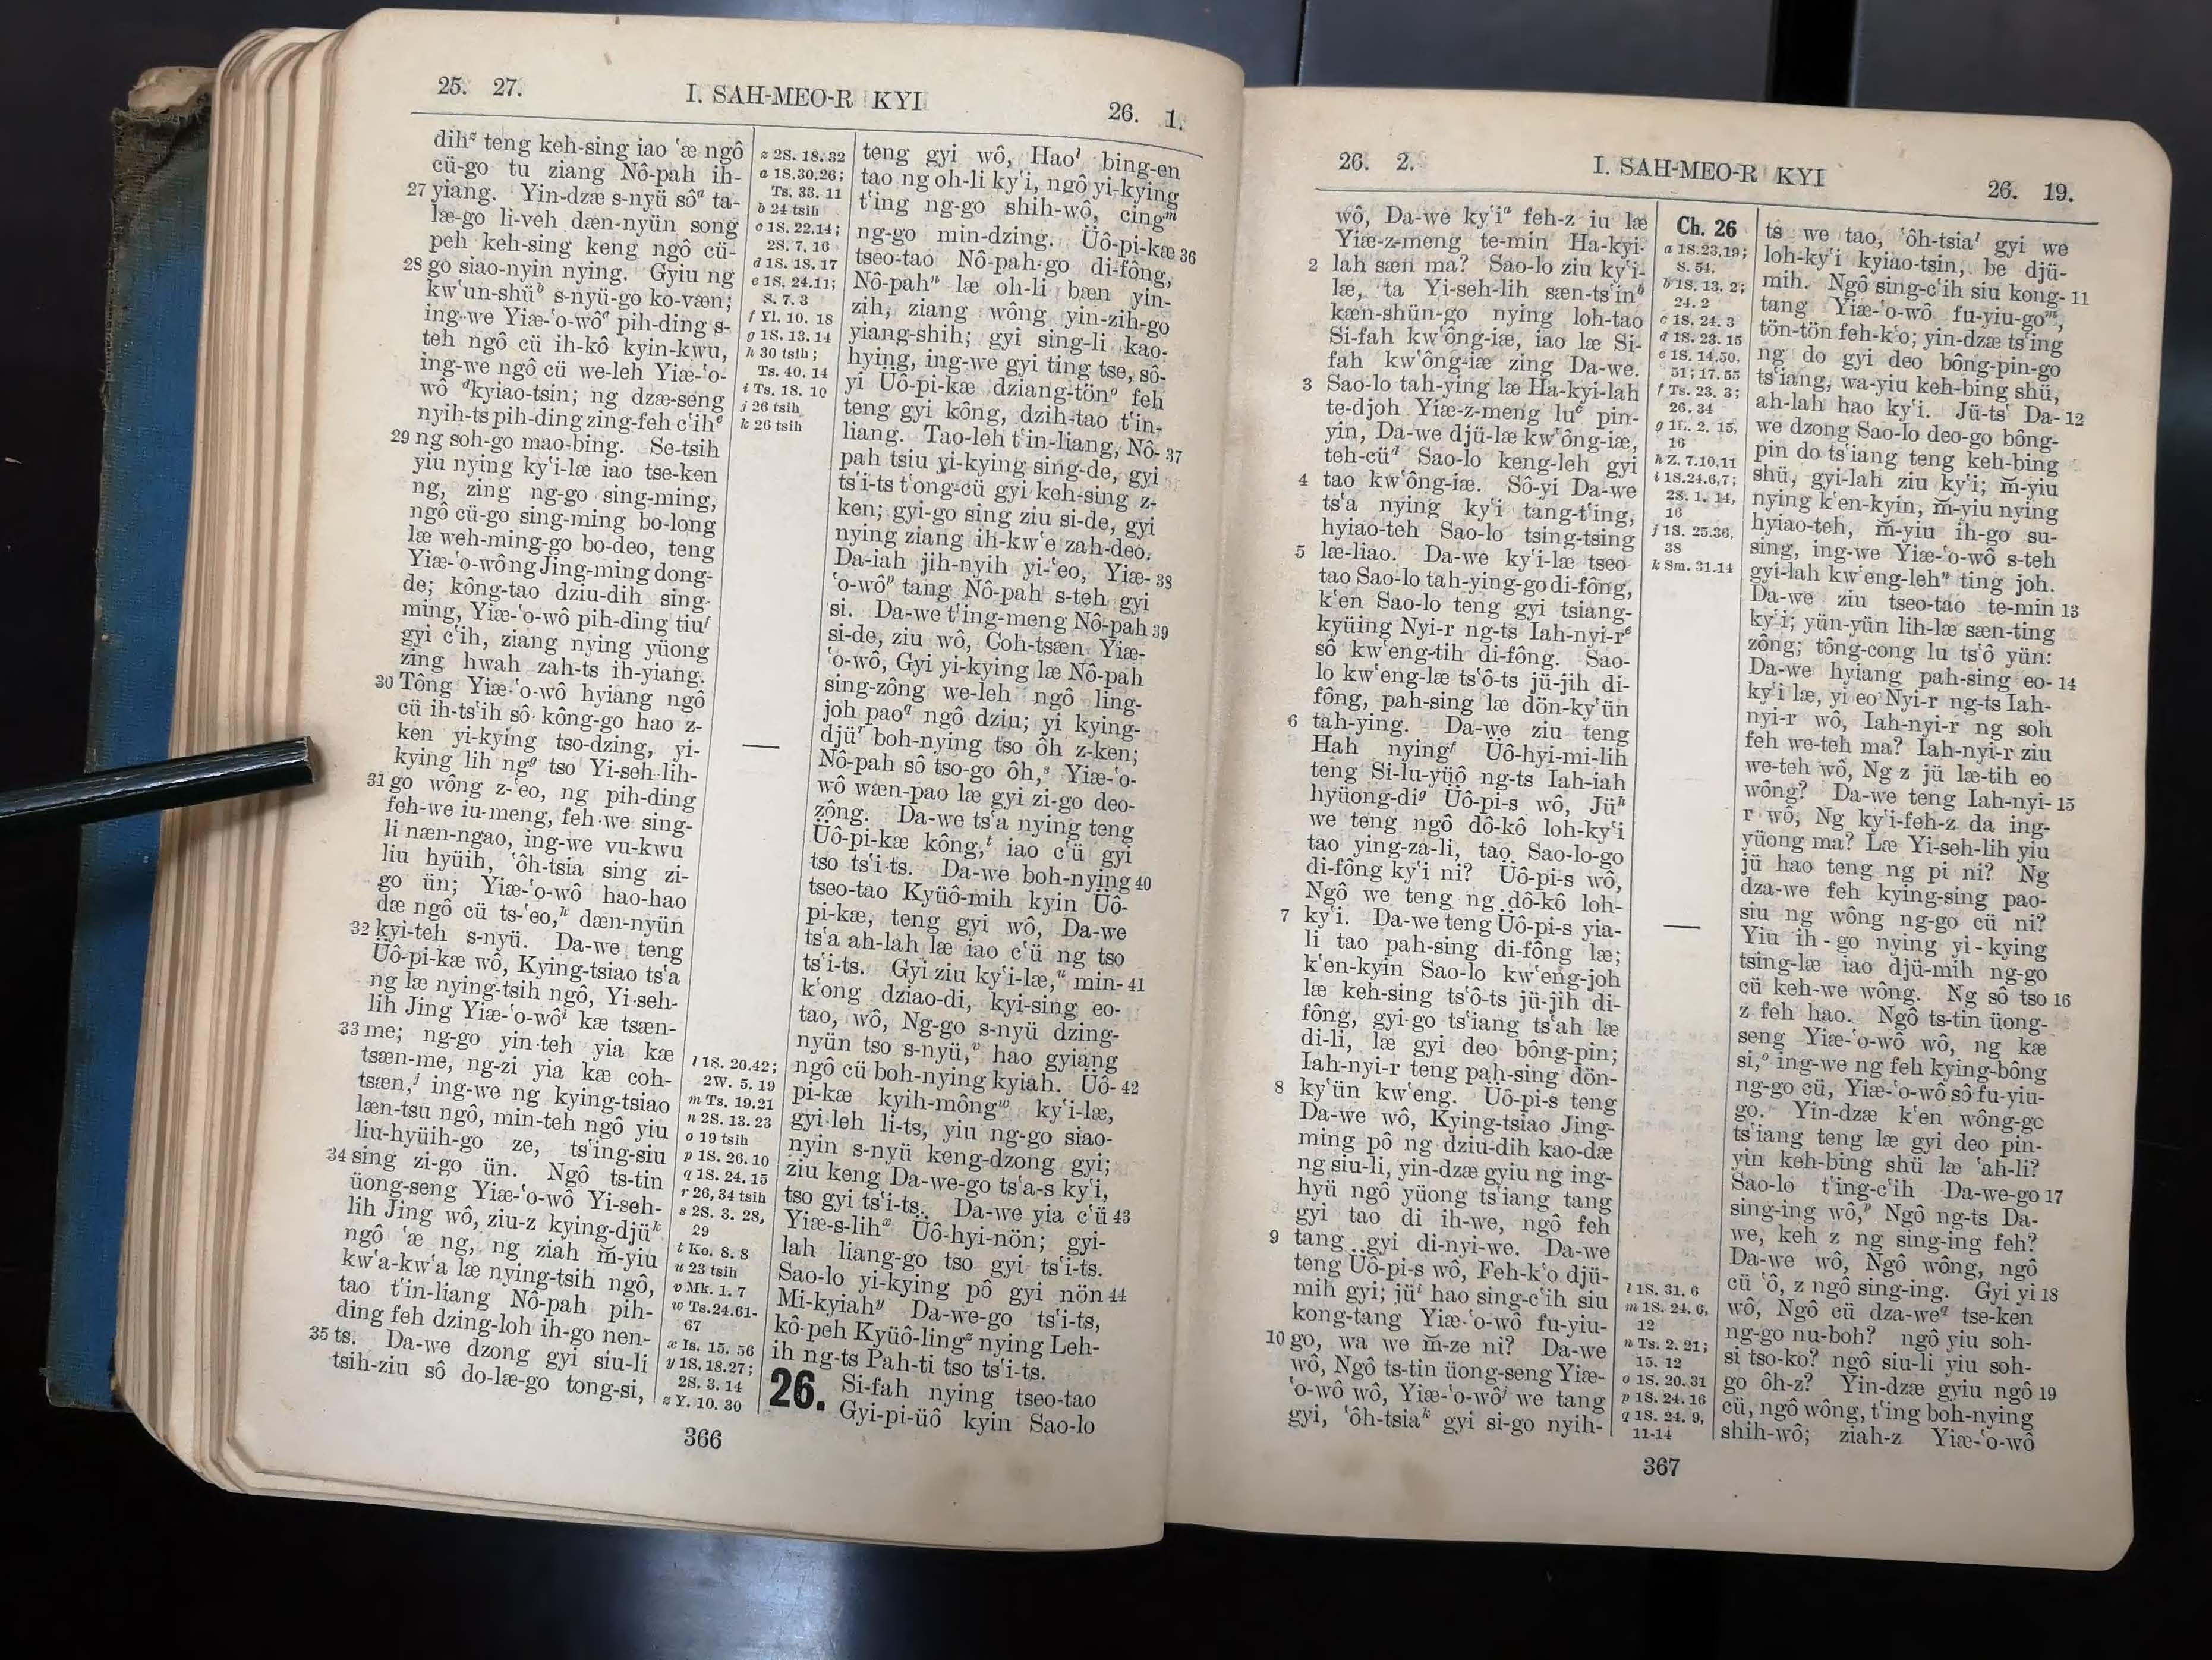 25. 27. I. SAH-MEO-R KYI 26. 1.
dihᶻ teng keh-sing iao ʻæ ngô
cü-go tu ziang Nô-pah ih-
27 yiang. Yin-dzæ s-nyü sôᵃ ta-
læ-go li-veh dæn-nyün song
peh keh-sing keng ngô cü-
28 go siao-nyin nying. Gyiu ng
kwʻun-shüᵇ s-nyü-go ko-væn;
ing-we Yiæ-ʻo-wôᶜ pih-ding s-
teh ngô cü ih-kô kyin-kwu,
ing-we ngô cü we-leh Yiæ-ʻo-
wô ᵈkyiao-tsin; ng dzæ-seng
nyih-ts pih-ding zing-feh cʻihᵉ
29 ng soh-go mao-bing. Se-tsih
yiu nying kyʻi-læ iao tse-ken
ng, zing ng-go sing-ming,
ngô cü-go sing-ming bo-long
læ weh-ming-go bo-deo, teng
Yiæ-ʻo-wô ng Jing-ming dong-
de; kông-tao dziu-dih sing-
ming, Yiæ-ʻo-wô pih-ding tiuᶠ
gyi cʻih, ziang nying yüong
zing hwah zah-ts ih-yiang.
30 Tông Yiæ-ʻo-wô hyiang ngô
cü ih-tsʻih sô kông-go hao z-
ken yi-kying tso-dzing, yi-
kying lih ngᵍ tso Yi-seh-lih-
31 go wông z-ʻeo, ng pih-ding
feh-we iu-meng, feh-we sing-
li næn-ngao, ing-we vu-kwu
liu hyüih, ʻôh-tsia sing zi-
go ün; Yiæ-ʻo-wô hao-hao
dæ ngô cü ts-ʻeo,ʰ dæn-nyün
32 kyi-teh s-nyü. Da-we teng
Üô-pi-kæ wô, Kying-tsiao tsʻa
ng læ nying-tsih ngô, Yi-seh-
lih Jing Yiæ-ʻo-wôⁱ kæ tsæn-
33 me; ng-go yin-teh yia kæ
tsæn-me, ng-zi yia kæ coh-
tsæn,ʲ ing-we ng kying-tsiao
læn-tsu ngô, min-teh ngô yiu
liu-hyüih-go ze, tsʻing-siu
34 sing zi-go ün. Ngô ts-tin
üong-seng Yiæ-ʻo-wô Yi-seh-
lih Jing wô, ziu-z kying-djüᵏ
ngô ʻæ ng, ng ziah m̆-yiu
kwʻa-kwʻa læ nying-tsih ngô,
tao tʻin-liang Nô-pah pih-
ding feh dzing-loh ih-go nen-
35 ts. Da-we dzong gyi siu-li
tsih-ziu sô do-læ-go tong-si,
z 2S. 18. 32
a 1S.30.26;
Ts. 33. 11
b 24 tsih
c 1S. 22.14;
2S. 7. 16
d 1S. 18. 17
e 1S. 24.11;
S. 7. 3
f Yl. 10. 18
g 1S. 13. 14
h 30 tsih;
Ts. 40. 14
i Ts. 18. 10
j 26 tsih
k 26 tsih
l 1S. 20.42;
2W. 5. 19
m Ts. 19.21
n 2S. 13. 23
o 19 tsih
p 1S. 26. 10
q 1S. 24. 15
r 26, 34 tsih
s 2S. 3. 28,
29
t Ko. 8. 8
u 23 tsih
v Mk. 1. 7
w Ts.24.61-
67
x Is. 15. 56
y 1S. 18.27;
2S. 3. 14
z Y. 10. 30
teng gyi wô, Haoˡ bing-en
tao ng oh-li kyʻi, ngô yi-kying
tʻing ng-go shih-wô, cingᵐ
ng-go min-dzing. Üô-pi-kæ 36
tseo-tao Nô-pah-go di-fông,
Nô-pahⁿ læ oh-li bæn yin-
zih, ziang wông yin-zih-go
yiang-shih; gyi sing-li kao-
hying, ing-we gyi ting tse, sô-
yi Üô-pi-kæ dziang-tönᵒ feh
teng gyi kông, dzih-tao tʻin-
liang. Tao-leh tʻin-liang, Nô- 37
pah tsiu yi-kying sing-de, gyi
tsʻi-ts tʻong-cü gyi keh-sing z-
ken; gyi-go sing ziu si-de, gyi
nying ziang ih-kwʻe zah-deo.
Da-iah jih-nyih yi-ʻeo, Yiæ- 38
ʻo-wôᵖ tang Nô-pah s-teh gyi
si. Da-we tʻing-meng Nô-pah 39
si-de, ziu wô, Coh-tsæn Yiæ-
ʻo-wô, Gyi yi-kying læ Nô-pah
sing-zông we-leh ngô ling-
joh paoᑫ ngô dziu; yi kying-
djüʳ boh-nying tso ôh z-ken;
Nô-pah sô tso-go ôh,ˢ Yiæ-ʻo-
wô wæn-pao læ gyi zi-go deo-
zông. Da-we tsʻa nying teng
Üô-pi-kæ kông,ᵗ iao cʻü gyi
tso tsʻi-ts. Da-we boh-nying 40
tseo-tao Kyüô-mih kyin Üô-
pi-kæ, teng gyi wô, Da-we
tsʻa ah-lah læ iao cʻü ng tso
tsʻi-ts. Gyi ziu kyʻi-læ,ᵘ min- 41
kʻong dziao-di, kyi-sing eo-
tao, wô, Ng-go s-nyü dzing-
nyün tso s-nyü,ᵛ hao gyiang
ngô cü boh-nying kyiah. Üô- 42
pi-kæ kyih-môngʷ kyʻi-læ,
gyi-leh li-ts, yiu ng-go siao-
nyin s-nyü keng-dzong gyi;
ziu keng Da-we-go tsʻa-s kyʻi,
tso gyi tsʻi-ts. Da-we yia cʻü 43
Yiæ-s-lihˣ Üô-hyi-nön; gyi-
lah liang-go tso gyi tsʻi-ts.
Sao-lo yi-kying pô gyi nön 44
Mi-kyiahʸ Da-we-go tsʻi-ts,
kô-peh Kyüô-lingᶻ nying Leh-
ih ng-ts Pah-ti tso tsʻi-ts.
26. Si-fah nying tseo-tao
Gyi-pi-üô kyin Sao-lo
366
26. 2. I. SAH-MEO-R KYI 26. 19.
wô, Da-we kyʻiᵃ feh-z iu læ
Yiæ-z-meng te-min Ha-kyi-
2 lah sæn ma? Sao-lo ziu kyʻi-
læ, ta Yi-seh-lih sæn-tsʻinᵇ
kæn-shün-go nying loh-tao
Si-fah kwʻông-iæ, iao læ Si-
fah kwʻông-iæ zing Da-we.
3 Sao-lo tah-ying læ Ha-kyi-lah
te-djoh Yiæ-z-meng luᶜ pin-
yin, Da-we djü-læ kwʻông-iæ,
teh-cüᵈ Sao-lo keng-leh gyi
4 tao kwʻông-iæ. Sô-yi Da-we
tsʻa nying kyʻi tang-tʻing,
hyiao-teh Sao-lo tsing-tsing
5 læ-liao. Da-we kyʻi-læ tseo
tao Sao-lo tah-ying-go di-fông,
kʻen Sao-lo teng gyi tsiang-
kyüing Nyi-r ng-ts Iah-nyi-rᵉ
sô kwʻeng-tih di-fông. Sao-
lo kwʻeng-læ tsʻô-ts jü-jih di-
fông, pah-sing læ dön-kyʻün
6 tah-ying. Da-we ziu teng
Hah nyingᶠ Üô-hyi-mi-lih
teng Si-lu-yüô ng-ts Iah-iah
hyüong-diᵍ Üô-pi-s wô, Jüʰ
we teng ngô dô-kô loh-kyʻi
tao ying-za-li, tao Sao-lo-go
di-fông kyʻi ni? Üô-pi-s wô,
Ngô we teng ng dô-kô loh-
7 kyʻi. Da-we teng Üô-pi-s yia-
li tao pah-sing di-fông læ;
kʻen-kyin Sao-lo kwʻeng-joh
læ keh-sing tsʻô-ts jü-jih di-
fông, gyi-go tsʻiang tsʻah læ
di-li, læ gyi deo bông-pin;
Iah-nyi-r teng pah-sing dön-
8 kyʻün kwʻeng. Üô-pi-s teng
Da-we wô, Kying-tsiao Jing-
ming pô ng dziu-dih kao-dæ
ng siu-li, yin-dzæ gyiu ng ing-
hyü ngô yüong tsʻiang tang
gyi tao di ih-we, ngô feh
9 tang gyi di-nyi-we. Da-we
teng Üô-pi-s wô, Feh-kʻo djü-
mih gyi; jüⁱ hao sing-cʻih siu
kong-tang Yiæ-ʻo-wô fu-yiu-
10 go, wa we m̆-ze ni? Da-we
wô, Ngô ts-tin üong-seng Yiæ-
ʻo-wô wô, Yiæ-ʻo-wôʲ we tang
gyi, ʻôh-tsiaᵏ gyi si-go nyih-
Ch. 26
a 1S.23,19;
S. 54.
b 1S. 13. 2;
24. 2
c 1S. 24. 3
d 1S. 23. 15
e 1S. 14.50,
51; 17. 55
f Ts. 23. 3;
26. 34
g 1L. 2. 15,
16
h Z. 7.10,11
i 1S.24.6,7;
2S. 1. 14,
16
j 1S. 25.36,
38
k Sm. 31.14
l 1S. 31. 6
m 1S. 24. 6,
12
n Ts. 2. 21;
15. 12
o 1S. 20.31
p 1S. 24. 16
q 1S. 24. 9,
11-14
ts we tao, ʻôh-tsiaˡ gyi we
loh-kyʻi kyiao-tsin, be djü-
mih. Ngô sing-cʻih siu kong- 11
tang Yiæ-ʻo-wô fu-yiu-goᵐ,
tön-tön feh-kʻo; yin-dzæ tsʻing
ng do gyi deo bông-pin-go
tsʻiang, wa-yiu keh-bing shü,
ah-lah hao kyʻi. Jü-tsʻ Da- 12
we dzong Sao-lo deo-go bông-
pin do tsʻiang teng keh-bing
shü, gyi-lah ziu kyʻi; m̆-yiu
nying kʻen-kyin, m̆-yiu nying
hyiao-teh, m̆-yiu ih-go su-
sing, ing-we Yiæ-ʻo-wô s-teh
gyi-lah kwʻeng-lehⁿ ting joh.
Da-we ziu tseo-tao te-min 13
kyʻi; yün-yün lih-læ sæn-ting
zông; tông-cong lu tsʻô yün:
Da-we hyiang pah-sing eo- 14
kyʻi læ, yi eo Nyi-r ng-ts Iah-
nyi-r wô, Iah-nyi-r ng soh
feh we-teh ma? Iah-nyi-r ziu
we-teh wô, Ng z jü læ-tih eo
wông? Da-we teng Iah-nyi- 15
r wô, Ng kyʻi-feh-z da ing-
yüong ma? Læ Yi-seh-lih yiu
jü hao teng ng pi ni? Ng
dza-we feh kying-sing pao-
siu ng wông ng-go cü ni?
Yiu ih-go nying yi-kying
tsing-læ iao djü-mih ng-go
cü keh-we wông. Ng sô tso 16
z feh hao. Ngô ts-tin üong-
seng Yiæ-ʻo-wô wô, ng kæ
si,ᵒ ing-we ng feh kying-bông
ng-go cü, Yiæ-ʻo-wô sô fu-yiu-
go. Yin-dzæ kʻen wông-go
tsʻiang teng læ gyi deo pin-
yin keh-bing shü læ ʻah-li?
Sao-lo tʻing-cʻih Da-we-go 17
sing-ing wô,ᵖ Ngô ng-ts Da-
we, keh z ng sing-ing feh?
Da-we wô, Ngô wông, ngô
cü ʻô, z ngô sing-ing. Gyi yi 18
wô, Ngô cü dza-weᑫ tse-ken
ng-go nu-boh? ngô yiu soh-
si tso-ko? ngô siu-li yiu soh-
go ôh-z? Yin-dzæ gyiu ngô 19
cü, ngô wông, tʻing boh-nying
shih-wô; ziah-z Yiæ-ʻo-wô
367